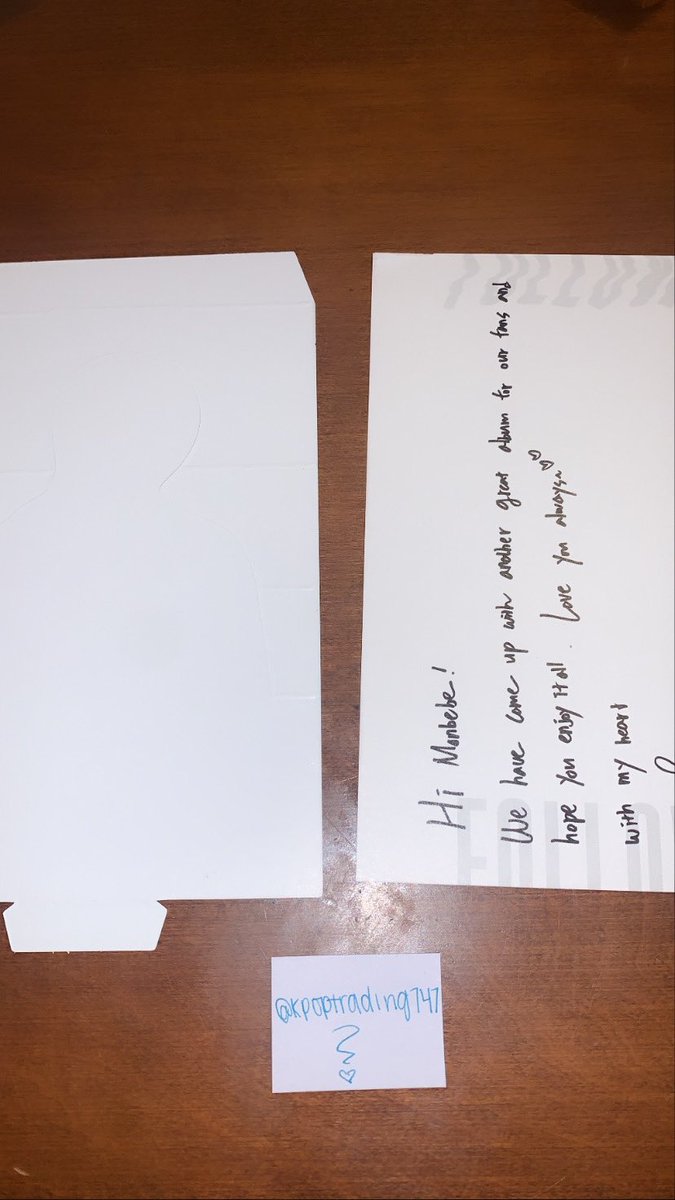 Hi Monbebe!
We have come up with another great album for our fans and
hope you enjoy it all. Love you always~
with my heart
FOLLOW
@kpoptrading747